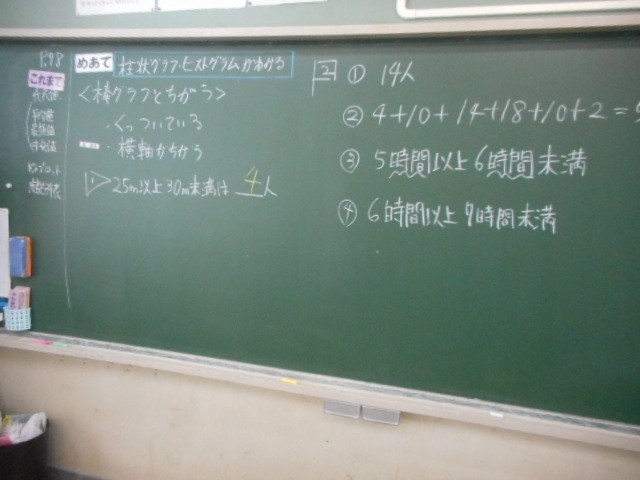 P.98
めあて 柱状グラフ、ヒストグラムがわかる
これまで
代表値
平均値
最頻値
中央値
ドットプロット
度数分布表
<棒グラフとちがう>
・くっついている
・横軸がちがう
1 25m以上30m未満は 4人
2 ① 14人
② 4+10+14+18+10+2=
③ 5時間以上6時間未満
④ 6時間以上7時間未満